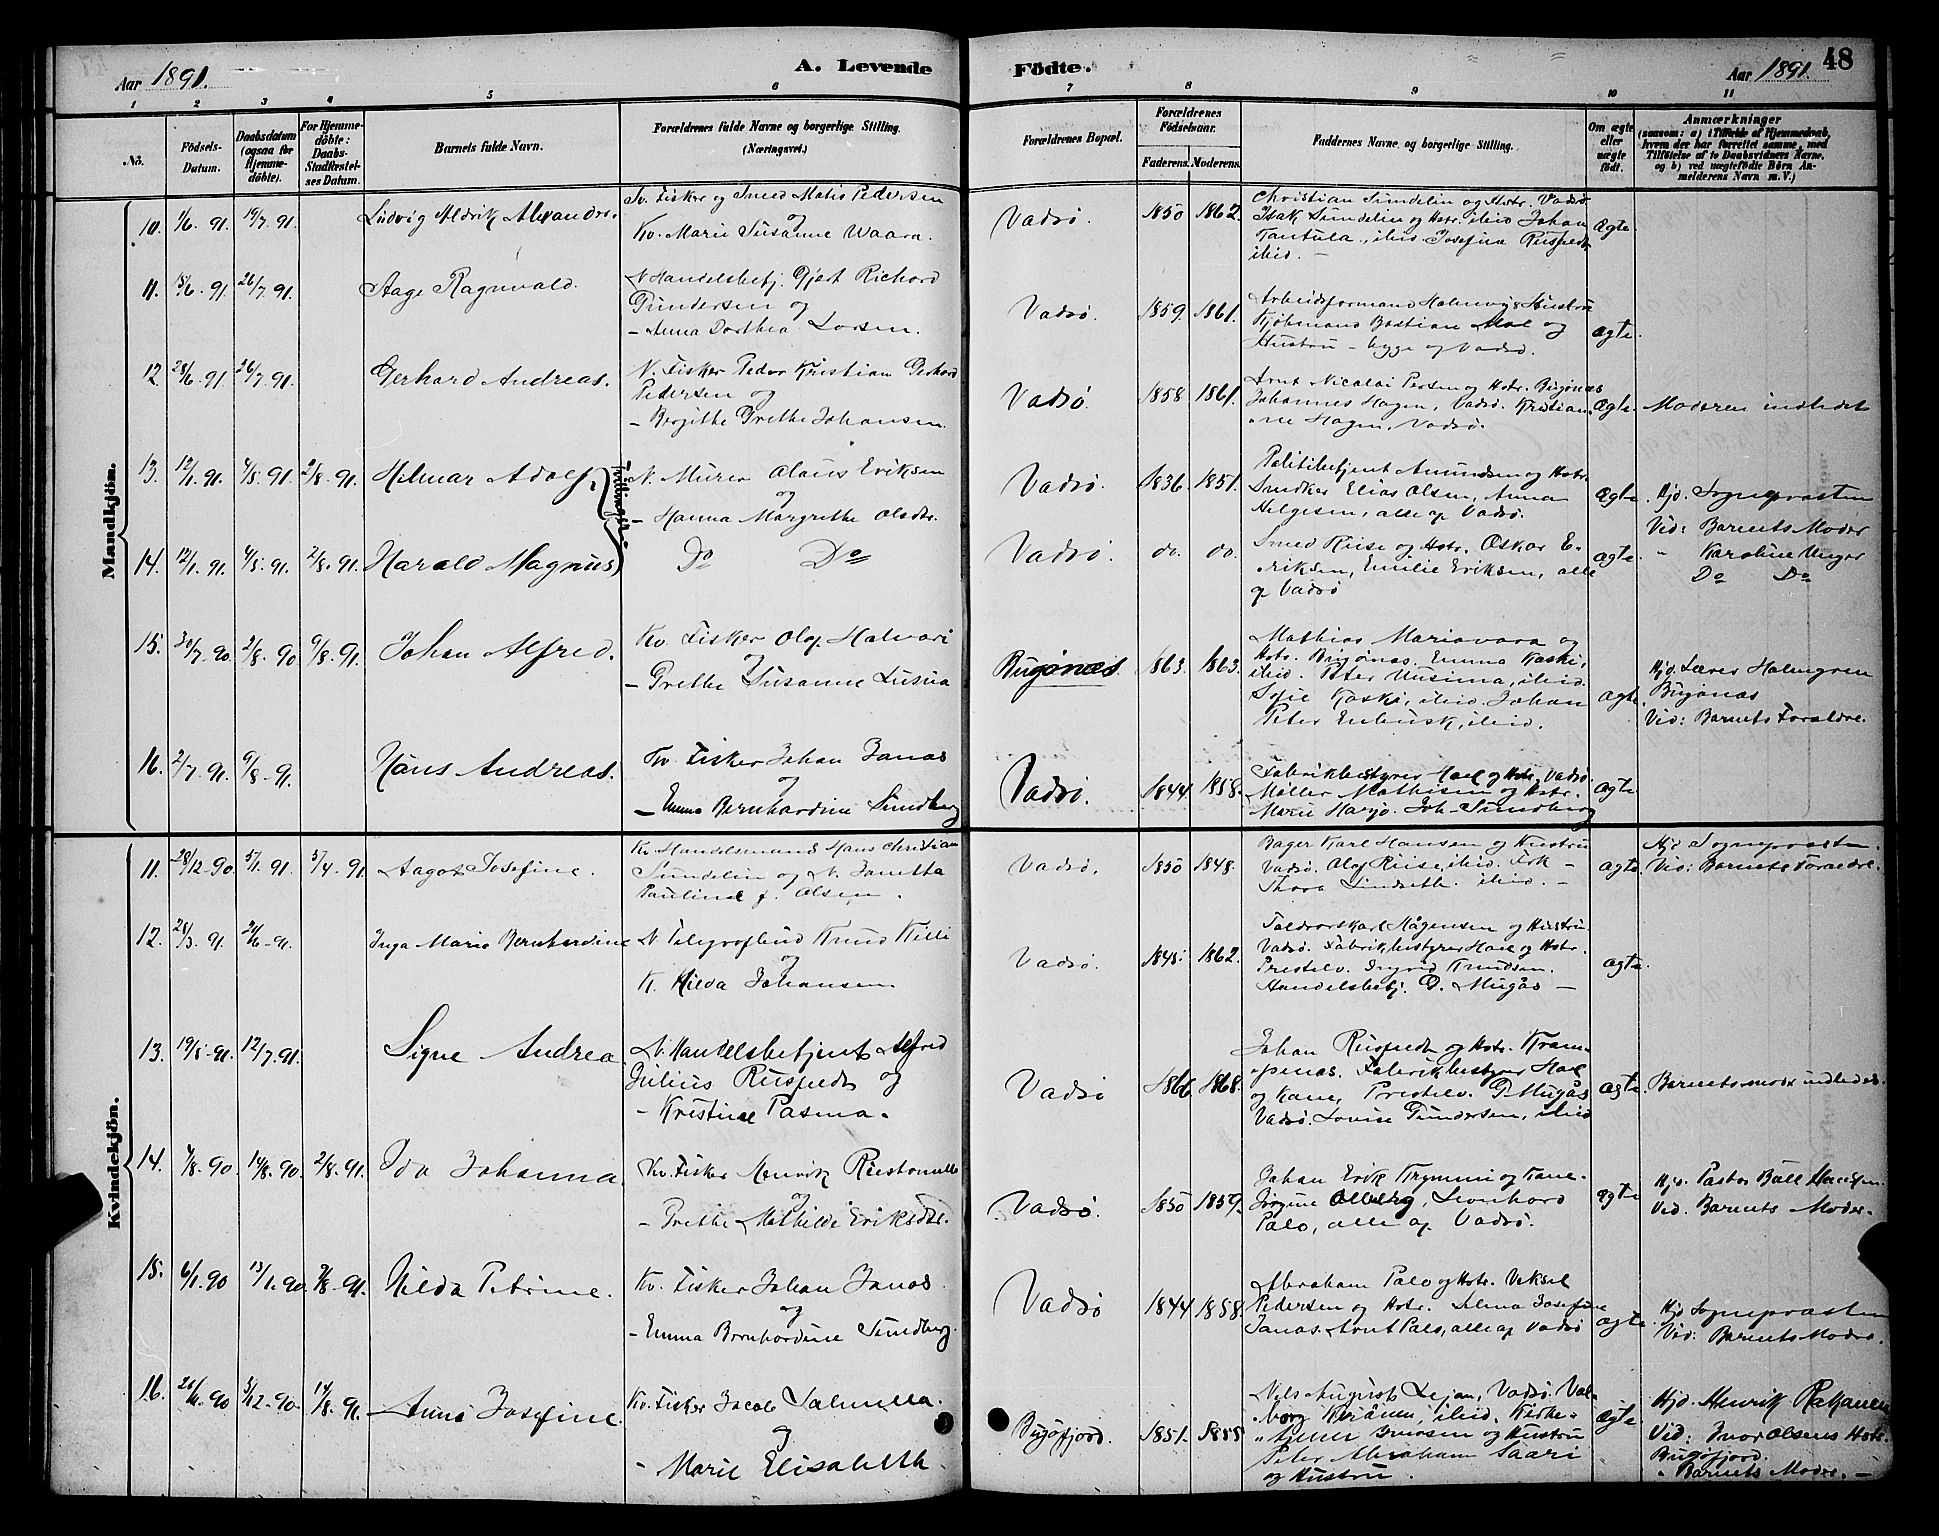 Aar 1891. A. Levende Födte. Aar 1891. 48
1 2 3 4 5 6 7 8 9 10 11
No. Födsels-Datum. Daabsdatum (ogsaa for Hjemme-döbte). For Hjemme-döbte: Daabs-Stadfæstel-ses Datum. Barnets fulde Navn. Forældrenes fulde Navne og borgerlige Stilling. (Næringsvei.) Forældrenes Bopæl. Forældrenes Födselsaar. Faderens. Moderens. Faddernes Navne og borgerlige Stilling. Om ægte eller uægte födt. Anmærkninger (saasom: a) i Tilfælde af Hjemmedaab, hvem der har forrettet samme, med Tilföielse af to Daabsvidners Navne, og b) ved uægtefödte Börn An-melderens Navn m. V.)
Mandkjön.
10. 1/6. 91. 19/7. 91. Ludvig Aldrik Alexander.
Fisker og Smed Matis Pedersen
og
Kv. Marie Susanne Waara.
Vadsø. 1850 1862.
Christian Sundelin og Hstr. Vadsø
Isak Sundelin og Hstr. ibid Johan
Tantula, ibid Josefina
ibid. —
Ægte.
11. 15/6. 91. 26/7. 91. Aage Ragnvald.
N. Handelsbetj. Gjert Richard
Gundersen og
— Anna Dorthea Larsen.
Vadsø. 1859. 1861.
Arbeidsformand Halmøy & Hustru
Kjøbmand Bastian og
Hustru — begge af Vadsø.
Ægte.
12. 28/6. 91. 26/7. 91. Gerhard Andreas.
N. Fisker Peder Kristian Gerhard
Pedersen og
— Birgitte Grethe Johansen.
Vadsø. 1858 1861.
Arnt Nicolai Persen og Hstr. Bugønæs
Johannes Hagen, Vadsø. Kristian-
ne Hagen, Vadsø.
Ægte. Moderen indledet
13. 12/1. 91. 4/5. 91. 2/8. 91. Hilmar Adolf,
Tvillinger
N. Murer Olaus Eriksen
og
— Hanna Margrethe Olsdtr.
Vadsø. 1836. 1851.
Politibetjent Amundsen og Hstr.
Snedker Elias Olsen, Anna
Helgesen, alle af Vadsø.
Ægte. Hjd. Sogneprasten
Vid: Barnets Moder
14. 12/1. 91. 4/5. 91. 2/8. 91. Harald Magnus
Do Do
Vadsø. do. do.
Smed Riise og Hstr. Oskar E-
riksen, Emilie Eriksen, alle
af Vadsø
ægte. " Karoline Unger
Do Do
15. 30/7. 90. 2/8. 90 9/8. 91. Johan Alfred.
Kv. Fisker Olaf Halvari
og
— Grethe Susanne Lusua
Bugønæs 1863. 1863.
Mathias Mariavara og
Hstr. Bugønæs. Emma Kaski,
ibid. Peter Uusima, ibid.
Sofie Kaski, ibid. Johan
Peter ibid.
ægte. Hjd. Lærer Halmgren
Bugønæs
Vid: Barnets Forældre.
16. 2/7. 91. 9/8. 91. Hans Andreas.
Kv. Fisker Johan Janas
og
— Emma Bernhardine Sundberg
Vadsø. 1844 1858.
Fabrikbestyrer og Hstr. Vadsø.
Møller Mathisen og Hstr.
Marie Harjo. Joh. Sundberg
ægte
Kvindekjön.
11. 28/12. 90. 5/1. 91. 5/4. 91 Aagot Josefine.
Kv. Handelsmand Hans Christian
Sundelin og N. Janetta
Pauline f. Olsen.
Vadsø. 1850 1848.
Bager Karl Hansen og Hustru
Vadsø. Olaf Riise, ibid. Frk —
Thora Lindseth. ibid. —
ægte. Hjd Sogneprasten.
Vid: Barnets Forældre.
12. 28/3. 91 21/6. 91. Inga Marie Bernhardine
N Telegrafbud Knud Killi
og
K. Hilda Johansen
Vadsø. 1848. 1862.
Toldvorskarl Hågensen og Hustru
Vadsø. Fabrikbestyrer og Hstr.
Prestelv. Ingvid Knudsen.
Handelsbetj. D. Mugås —
ægte.
13. 19/5. 91 12/7. 91. Signe Andrea
N. Handelsbetjent Alfred
Julius og
— Kristine Pasma.
Vadsø 1866. 1868.
Johan og Hstr. Kram-
penæs. Fabrikbestyrer
og Kone, Prestelv. D. Mugås
Vadsø. Lovise Gundersen, ibid
ægte Barnets moder indledes.
14. 7/8. 90. 14/8. 90. 2/8. 91. Ida Johanna
Kv. Fisker Henrik
og
— Grethe Mathilde Eriksdtr.
Vadsø. 1850 1859.
Johan Erik og Kone
Jørgine Leonhard
Palo, alle af Vadsø.
ægte Hjd. Pastor Balle
Vid. Barnets Moder.
15. 6/1. 90 13/1. 90. 9/8. 91. Hilda Petrine.
Kv. Fisker Johan Janas.
og
— Emma Bernhardine Sundberg.
Vadsø 1844 1858.
Abraham Palo og Hstr. Veksel
Pedersen og Hstr. Selma Josefine
Janas. Arnt Palo, alle af Vadsø
ægte. Hjd Sogneprasten
Vid: Barnets Moder.
16. 26/11. 90 3/12. 90. 14/8. 91. Anna Josefine.
Kv. Fisker Jacob Salmella.
og
— Marie Elisabeth.
Bugøfjord. 1851. 1855
Nils August Lejan, Vadsø. Val-
borg ibid. Kirke-
og Hustru
Peter Abraham Saari
og Hustru.
Ægte Hjd. Henrik
Vid: Ivar Olsens Hstr.
Bugøfjord.
" Barnets Moder. —